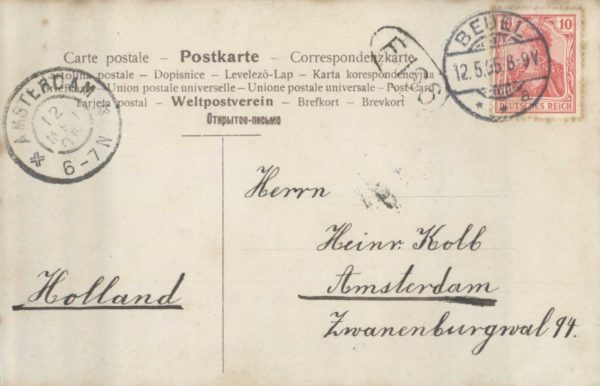 Carte postale – Postkarte – Correspondenzkarte
Cartolina postale – Dopisnice – Levelező-Lap – Karta korespondencyjna
Union postale universelle – Unione postale universale – Post Card
Tarjeta postal – Weltpostverein – Brefkort – Brevkort
Открытое-письмо
AMSTERDAM
12
MEI
6-7N
BEUEL
12.5.05.8-9V.
10
DEUTSCHES REICH
Herrn
Heinr. Kolb
Amsterdam
Zwanenburgwal 94.
Holland